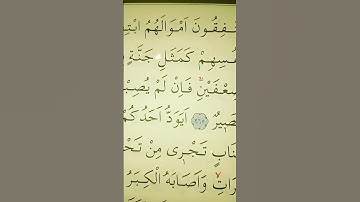 ـفِقُونَ اَمْوَالَهُمُ ابْتِـ
ـفُسِهِمْ كَمَثَلِ جَنَّةٍ
ـعْفَيْنِۚ فَاِنْ لَمْ يُصِبْـ
ـصٖيرٌ ﴿٢٦٥﴾ اَيَوَدُّ اَحَدُكُمْ
ـنَابٍ تَجْرٖى مِنْ تَحْـ
ـرَاتِۙ وَاَصَابَهُ الْكِبَرُ